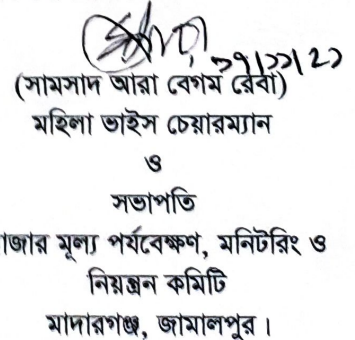 ২৭/১১/২১
(সামসাদ আরা বেগম রেবা)
মহিলা ভাইস চেয়ারম্যান
ও
সভাপতি
াজার মূল্য পর্যবেক্ষণ, মনিটরিং ও
নিয়ন্ত্রন কমিটি
মাদারগঞ্জ, জামালপুর।